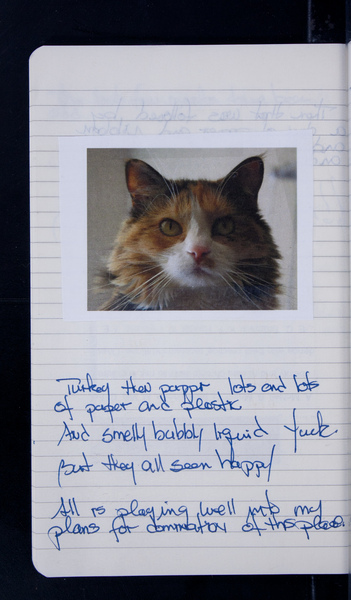 Turkey then paper lots and lots
of paper and plastic
And smelly bubbly liquid yuck
But they all seem happy
All is playing well into my
plans for domination of this place.